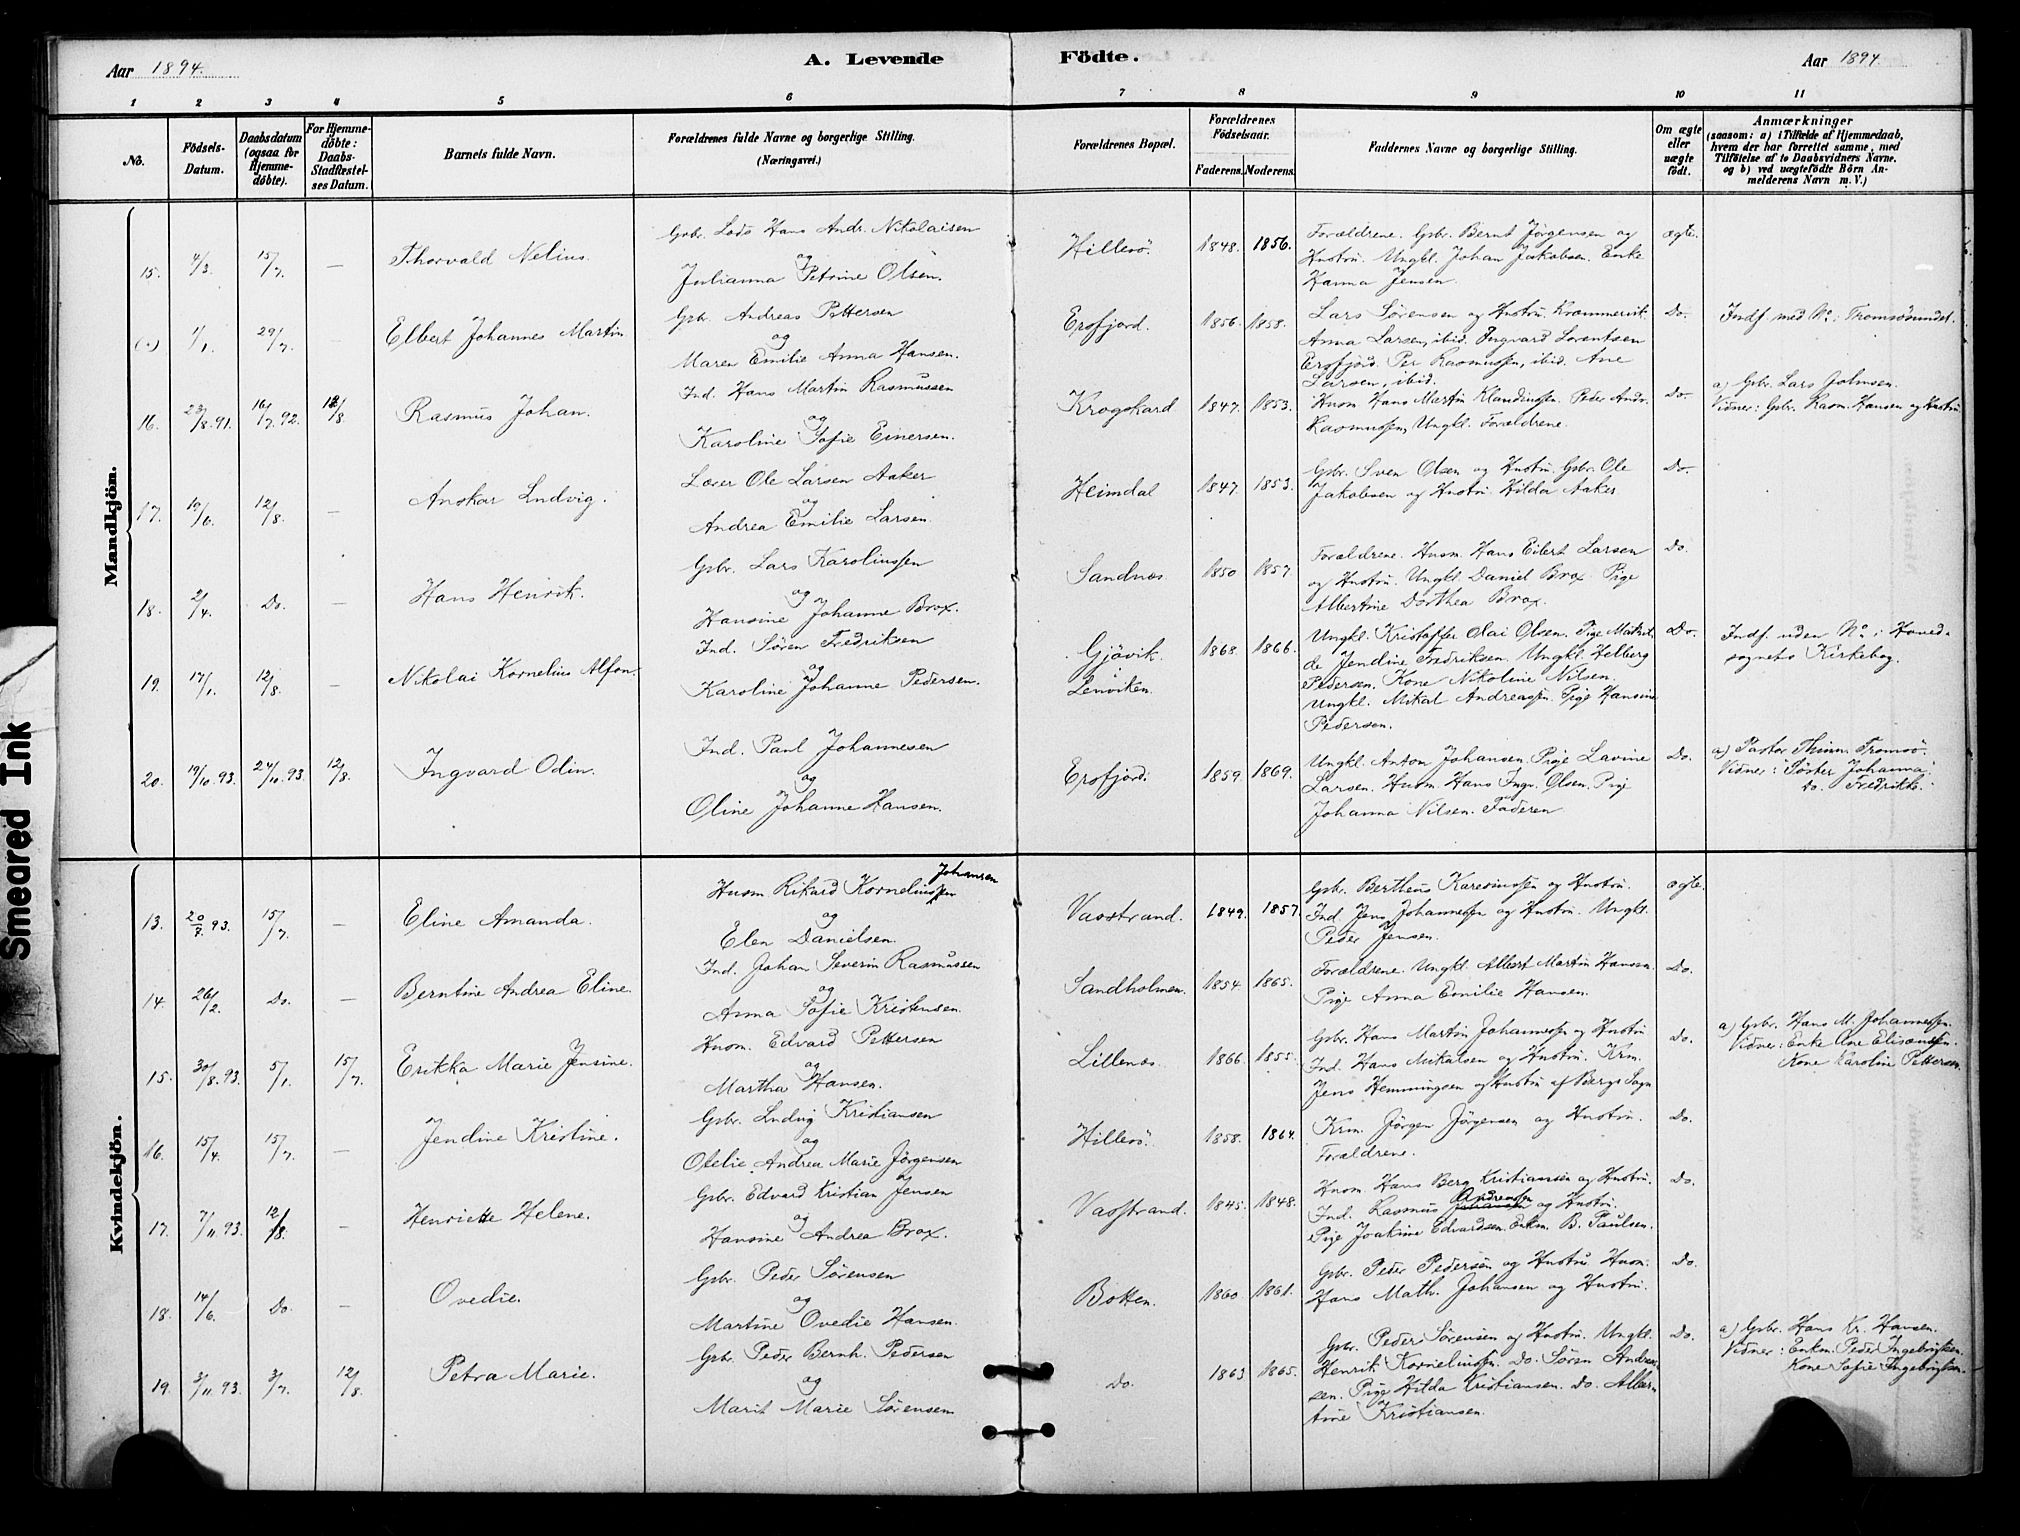 Aar 1894. A. Levende Födte. Aar 1894
1 2 3 4 5 6 7 8 9 10 11
No.
Födsels-Datum.
Daabsdatum (ogsaa for Hjemme-døbte).
For Hjemme-døbte: Daabs-Stadfæstel-ses Datum.
Barnets fulde Navn.
Forældrenes fulde Navne og borgerlige Stilling.
(Næringsvei.)
Forældrenes Bopæl.
Forældrenes Födselsaar.
Faderens. Moderens.
Faddernes Navne og borgerlige Stilling.
Om ægte eller uægte födt.
Anmærkninger
(saasom: a) i Tilfælde af Hjemmedaab,
hvem der har forrettet samme, med
Tilföielse af to Daabsvidners Navne.
og b) ved uægtefödte Börn An-
melderens Navn m. V.)
Mandkjön.
15. 4/3. 15/7. — Thorvald Nelius.
Gbr. Lods Hans Andr. Nikolaisen
og
Julianna Petrine Olsen.
Hillesö. 1848. 1856.
Forældrene. Gbr. Bernt Jørgensen og
Hustru. Ungkl. Johan Jakobsen. Enke
Hanna Jensen.
ægte.
1/1. 29/7. — Elbert Johannes Martin
Gbr. Andreas Pettersen
og
Maren Emilie Anna Hansen.
Ersfjord. 1856. 1858.
Lars Sørensen og Hustru Kræmmervik.
Anna Larsen, ibid. Ingvard Lorentsen
Ersfjord. Per Rasmussen, ibid. Ane
Larsen, ibid.
Do.
Indf. med No. i Tromsösundet.
16. 23/8.91. 16/7.92. 12/8. Rasmus Johan.
Ind. Hans Martin Rasmussen
og
Karoline Sofie Einersen.
Krogskard 1847. 1853.
Husm. Hans Martin Klaudiussen. Peder Andr.
Rasmussen, Ungkl. Forældrene.
Do.
a) Gbr. Lars Johnsen.
Vidner: Gbr. Rasm. Hansen og Hustru
17. 19/6. 12/8. — Anskar Ludvig.
Lærer Ole Larsen Aaker
og
Andrea Emilie Larsen.
Heimdal 1847. 1853.
Gbr. Sven Olsen og Hustru. Gbr. Ole
Jakobsen og Hustru. Hilda Aaker
Do.
18. 2/4. Do. — Hans Henrik.
Gbr. Lars Karoliussen
og
Hansine Johanne Brox.
Sandnes 1850 1857
Forældrene. Husm. Hans Eilert Larsen
og Hustru. Ungkl. Daniel Brox. Pige
Albertine Dorthea Brox.
Do.
19. 17/1. 12/8. — Nikolai Kornelius Alfon.
Ind. Sören Fredriksen
og
Karoline Johanne Pedersen.
Gjövik.
Lenviken.
1868. 1866.
Ungkl. Kristoffer Olai Olsen. Pige Mathil-
de Jendine Fredriksen. Ungkl. Helberg
Pedersen. Kone Nikoline Nilsen.
Ungkl. Mikal Andreassen. Pige Hansine
Pedersen.
Do.
Indf. uden No. i Hoved-
sognets Kirkebog.
20. 19/10.93. 24/10.93. 12/8. Ingvard Odin.
Ind. Paul Johannesen
og
Oline Johanne Hansen.
Ersfjord: 1859. 1869.
Ungkl. Anton Johansen. Pige Lavine
Larsen. Husm. Hans Ingv. Olsen. Pige
Johanna Nilsen. Faderen
Do.
a) Pastor Thinn. Tromsö.
Vidner: Söster Johanna
Do. Fredrikke.
Kvindekjön.
13. 20/7.93. 15/7. — Eline Amanda.
Husm. Rikard Korneliussen Johansen
og
Elen Danielsen.
Vasstrand. 1849. 1857.
Gbr. Bertheus Karesiussen og Hustru.
Ind. Jens Johannessen og Hustru. Ungkl.
Peder Jensen.
ægte.
14. 26/2. Do. — Berntine Andrea Eline.
Ind. Johan Severin Rasmussen
og
Anna Sofie Kristensen.
Sandholmen. 1854 1865.
Forældrene. Ungkl. Albert Martin Hansen
Pige Anna Emilie Hansen.
Do.
15. 30/8.93. 5/1. 15/7. Erikka Marie Jensine.
Husm. Edvard Pettersen
og
Martha Hansen.
Lillenes. 1866. 1855.
Gbr. Hans Martin Johannessen og Hustru
Ind. Hans Mikalsen og Hustru. Krm.
Jens Hemmingsen og Hustru af Bergs Sogn
Do.
a) Gbr. Hans M. Johannessen.
Vidner: Enke Ane Eliseussen.
Kone Karoline Pettersen.
16. 15/4. 15/7. — Jendine Kristine.
Gbr. Ludvig Kristiansen
og
Otelie Andrea Marie Jörgensen
Hillesö. 1858. 1864.
Krm. Jörgen Jörgensen og Hustru.
Forældrene.
Do.
17. 7/11.93. 12/8. — Henriette Helene.
Gbr. Edvard Kristian Jensen
og
Hansine Andrea Brox.
Vasstrand. 1845. 1848.
Husm. Hans Berg Kristiansen og Hustru.
Ind. Rasmus Andreassen og Hustru.
Pige Joakine Edvardsen. Enkm. B. Paulsen.
Do.
18. 14/6. Do. — Ovedie.
Gbr. Peder Sörensen
og
Martine Ovedie Hansen.
Botten. 1860. 1861.
Gbr. Peder Pedersen og Hustru. Husm.
Hans Math. Johansen og Hustru.
Do.
19. 3/11.93. 3/7. 12/8. Petra Marie.
Gbr. Peder Bernh. Pedersen
og
Marit Marie Sörensen
Do. 1863 1865.
Gbr. Peder Sörensen og Hustru. Ungkl.
Henrik Korneliussen. Do. Sören Andrea-
sen. Pige Hilda Kristiansen. Do. Alber-
tine Kristiansen.
Do.
a) Gbr. Hans Kr. Hansen.
Vidner: Enkm. Peder Ingebrigtsen.
Kone Sofie Ingebrigtsen.
Smeared Ink